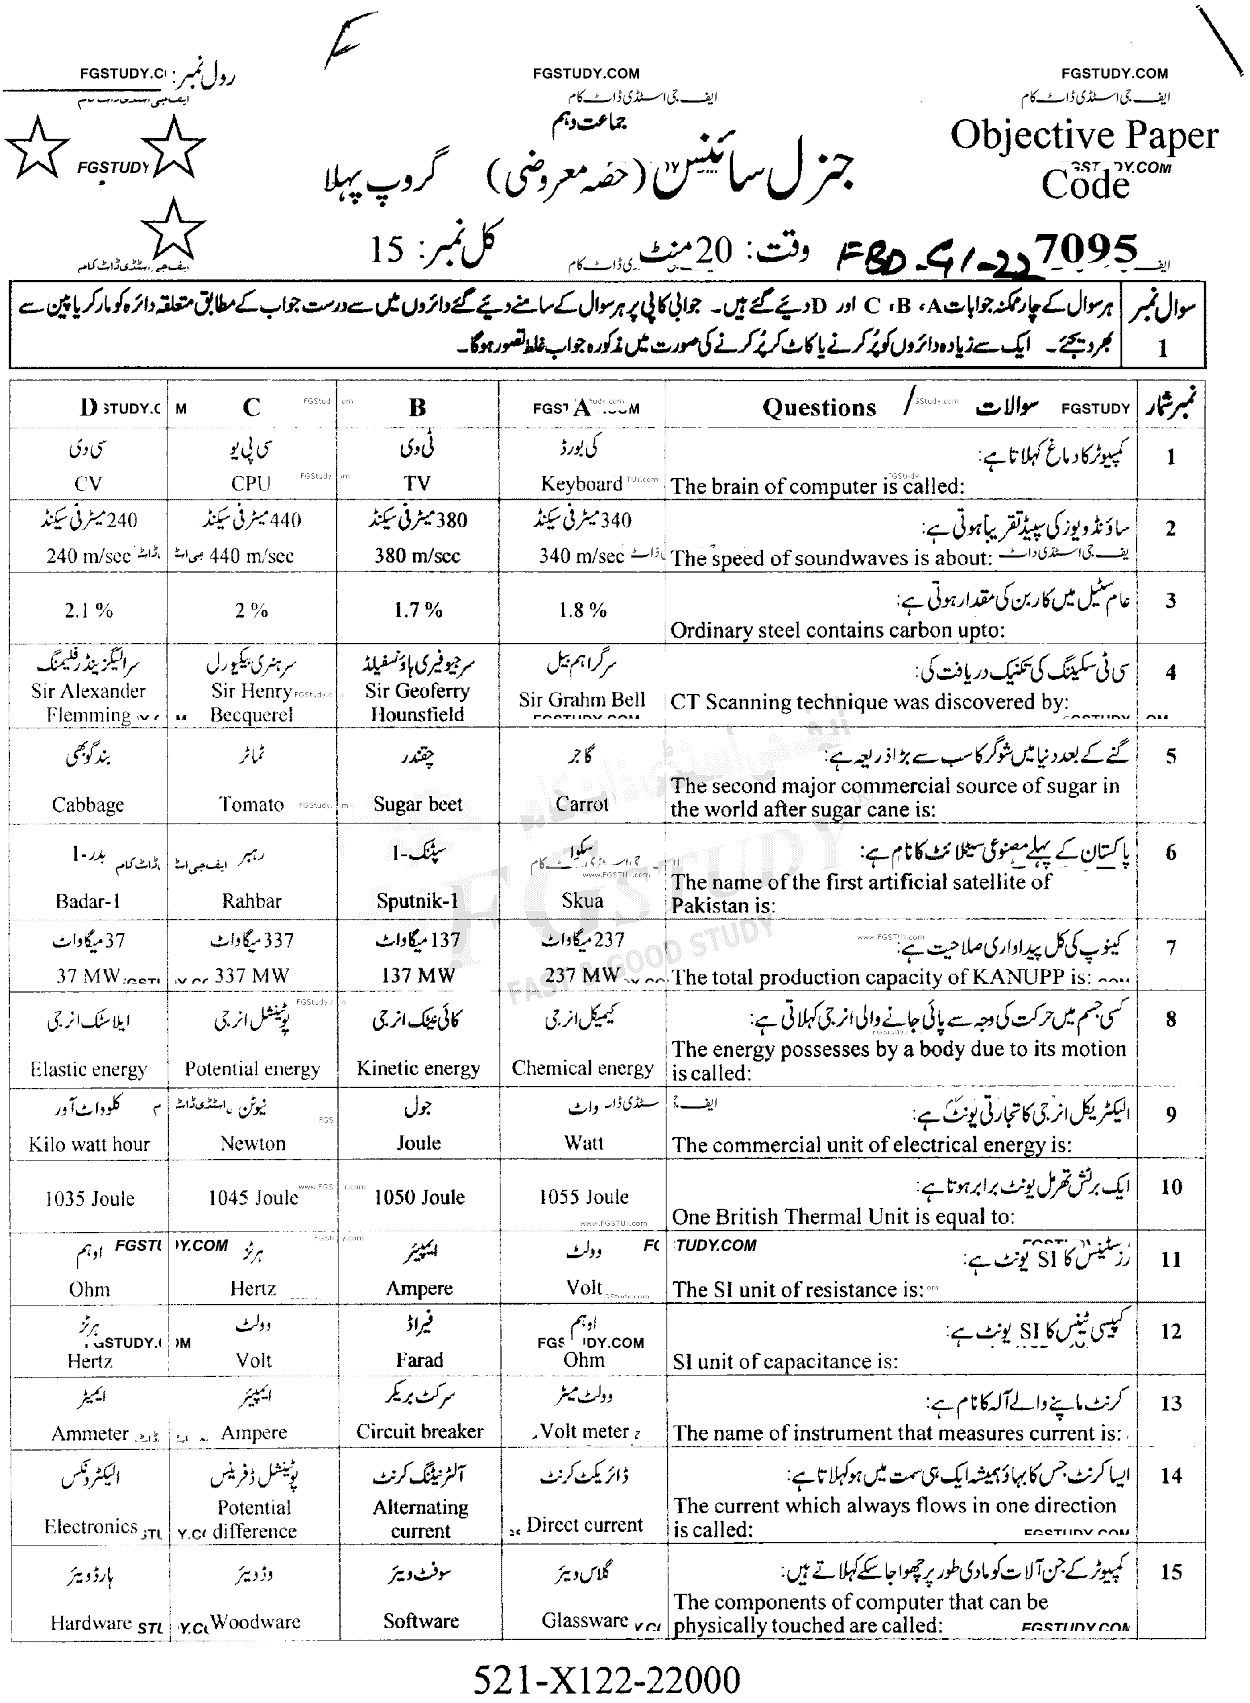 FGSTUDY.COM
رول نمبر:
ایف جی اسٹڈی ڈاٹ کام
FGSTUDY
FGSTUDY.COM
ایف جی اسٹڈی ڈاٹ کام
جماعت دہم
FGSTUDY.COM
ایف جی اسٹڈی ڈاٹ کام
Objective Paper
Code
جنرل سائنس (حصہ معروضی) گروپ پہلا
7095 FBD-G1-22 وقت: 20 منٹ کل نمبر: 15
سوال نمبر 1
ہر سوال کے چار ممکنہ جوابات A، B، C اور D دیئے گئے ہیں۔ جوابی کاپی پر ہر سوال کے سامنے دیئے گئے دائروں میں سے درست جواب کے مطابق متعلقہ دائرہ کو مارکر یا پین سے
بھر دیجئے۔ ایک سے زیادہ دائروں کو پُر کرنے یا کاٹ کر پُر کرنے کی صورت میں مذکورہ جواب غلط تصور ہوگا۔
نمبر شمار Questions / سوالات A B C D
1 کمپیوٹر کا دماغ کہلاتا ہے: کی بورڈ ٹی وی سی پی یو سی وی
The brain of computer is called: Keyboard TV CPU CV
2 ساؤنڈ ویوز کی سپیڈ تقریباً ہوتی ہے: 340 میٹر فی سیکنڈ 380 میٹر فی سیکنڈ 440 میٹر فی سیکنڈ 240 میٹر فی سیکنڈ
The speed of soundwaves is about: 340 m/sec 380 m/sec 440 m/sec 240 m/sec
3 عام سٹیل میں کاربن کی مقدار ہوتی ہے:
Ordinary steel contains carbon upto: 1.8 % 1.7 % 2 % 2.1 %
4 سی ٹی سکیننگ کی تکنیک دریافت کی: سر گراہم بیل سر جیوفیری ہاؤنسفیلڈ سر ہنری بیکیورل سر الیگزینڈر فلیمنگ
CT Scanning technique was discovered by: Sir Grahm Bell Sir Geoferry Hounsfield Sir Henry Becquerel Sir Alexander Flemming
5 گنے کے بعد دنیا میں شوگر کا سب سے بڑا ذریعہ ہے: گاجر چقندر ٹماٹر بند گوبھی
The second major commercial source of sugar in
the world after sugar cane is: Carrot Sugar beet Tomato Cabbage
6 پاکستان کے پہلے مصنوعی سیٹلائٹ کا نام ہے: سکوا سپٹنک-1 رہبر بدر-1
The name of the first artificial satellite of
Pakistan is: Skua Sputnik-1 Rahbar Badar-1
7 کینوپ کی کل پیداواری صلاحیت ہے: 237 میگاواٹ 137 میگاواٹ 337 میگاواٹ 37 میگاواٹ
The total production capacity of KANUPP is: 237 MW 137 MW 337 MW 37 MW
8 کسی جسم میں حرکت کی وجہ سے پائی جانے والی انرجی کہلاتی ہے: کیمیکل انرجی کائی نیٹک انرجی پوٹینشل انرجی ایلاسٹک انرجی
The energy possesses by a body due to its motion
is called: Chemical energy Kinetic energy Potential energy Elastic energy
9 الیکٹریکل انرجی کا تجارتی یونٹ ہے: واٹ جول نیوٹن کلو واٹ آور
The commercial unit of electrical energy is: Watt Joule Newton Kilo watt hour
10 ایک برٹش تھرمل یونٹ برابر ہوتا ہے:
One British Thermal Unit is equal to: 1055 Joule 1050 Joule 1045 Joule 1035 Joule
11 رزسٹینس کا SI یونٹ ہے: وولٹ ایمپیئر ہرٹز اوہم
The SI unit of resistance is: Volt Ampere Hertz Ohm
12 کپیسی ٹینس کا SI یونٹ ہے: اوہم فیراڈ وولٹ ہرٹز
SI unit of capacitance is: Ohm Farad Volt Hertz
13 کرنٹ ماپنے والے آلہ کا نام ہے: وولٹ میٹر سرکٹ بریکر ایمپیئر ایمیٹر
The name of instrument that measures current is: Volt meter Circuit breaker Ampere Ammeter
14 ایسا کرنٹ جس کا بہاؤ ہمیشہ ایک ہی سمت میں ہو کہلاتا ہے: ڈائریکٹ کرنٹ آلٹرنیٹنگ کرنٹ پوٹینشل ڈفرینس الیکٹرونکس
The current which always flows in one direction
is called: Direct current Alternating current Potential difference Electronics
15 کمپیوٹر کے جن آلات کو مادی طور پر چھوا جا سکے کہلاتے ہیں: گلاس ویئر سوفٹ ویئر وڈ ویئر ہارڈ ویئر
The components of computer that can be
physically touched are called: Glassware Software Woodware Hardware
521-X122-22000